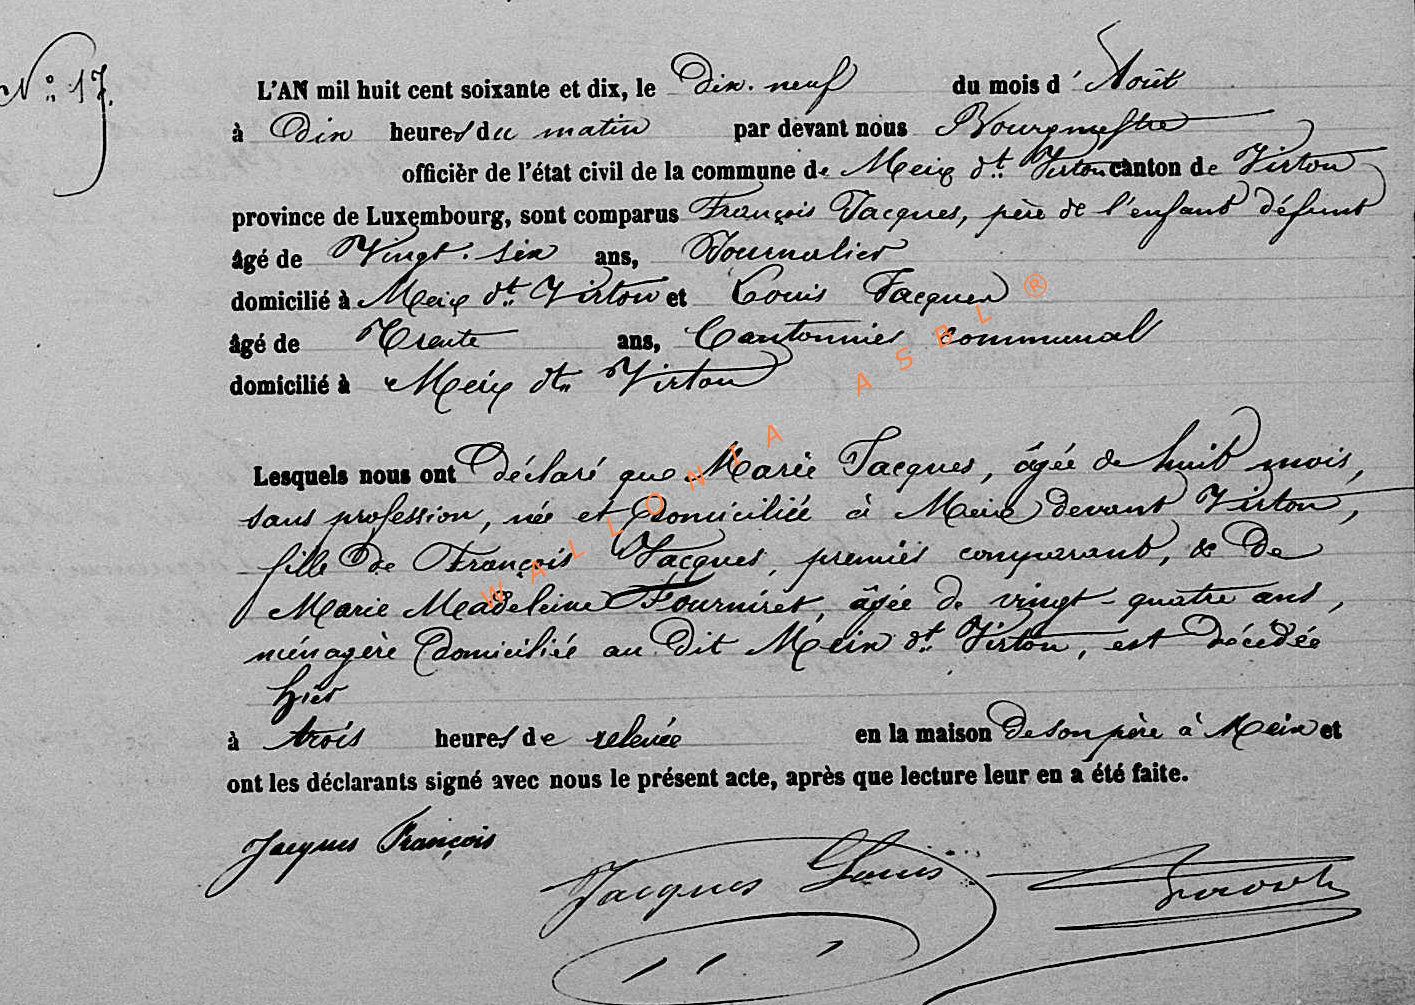 N° 17.
L'AN mil huit cent soixante et dix, le Dix-neuf du mois d'Août
à Dix heures du matin par devant nous Bourgmestre
officier de l'état civil de la commune de Meix dt Virton canton de Virton
province de Luxembourg, sont comparus François Jacques, père de l'enfant défunt
âgé de Vingt-six ans, Journalier
domicilié à Meix dt Virton et Louis Jacques
âgé de Trente ans, Cantonnier communal
domicilié à Meix dt Virton
Lesquels nous ont déclaré que Marie Jacques, âgée de huit mois,
sans profession, née et Domiciliée à Meix devant Virton,
fille de François Jacques, premier comparant, & De
Marie Madeleine Fourniret, âgée de vingt-quatre ans,
ménagère Domiciliée au dit Meix dt Virton, est décédée
hier
à trois heures de relevée en la maison De son père à Meix et
ont les déclarants signé avec nous le présent acte, après que lecture leur en a été faite.
Jacques François
Jacques Louis
WALLONIA ASBL ®